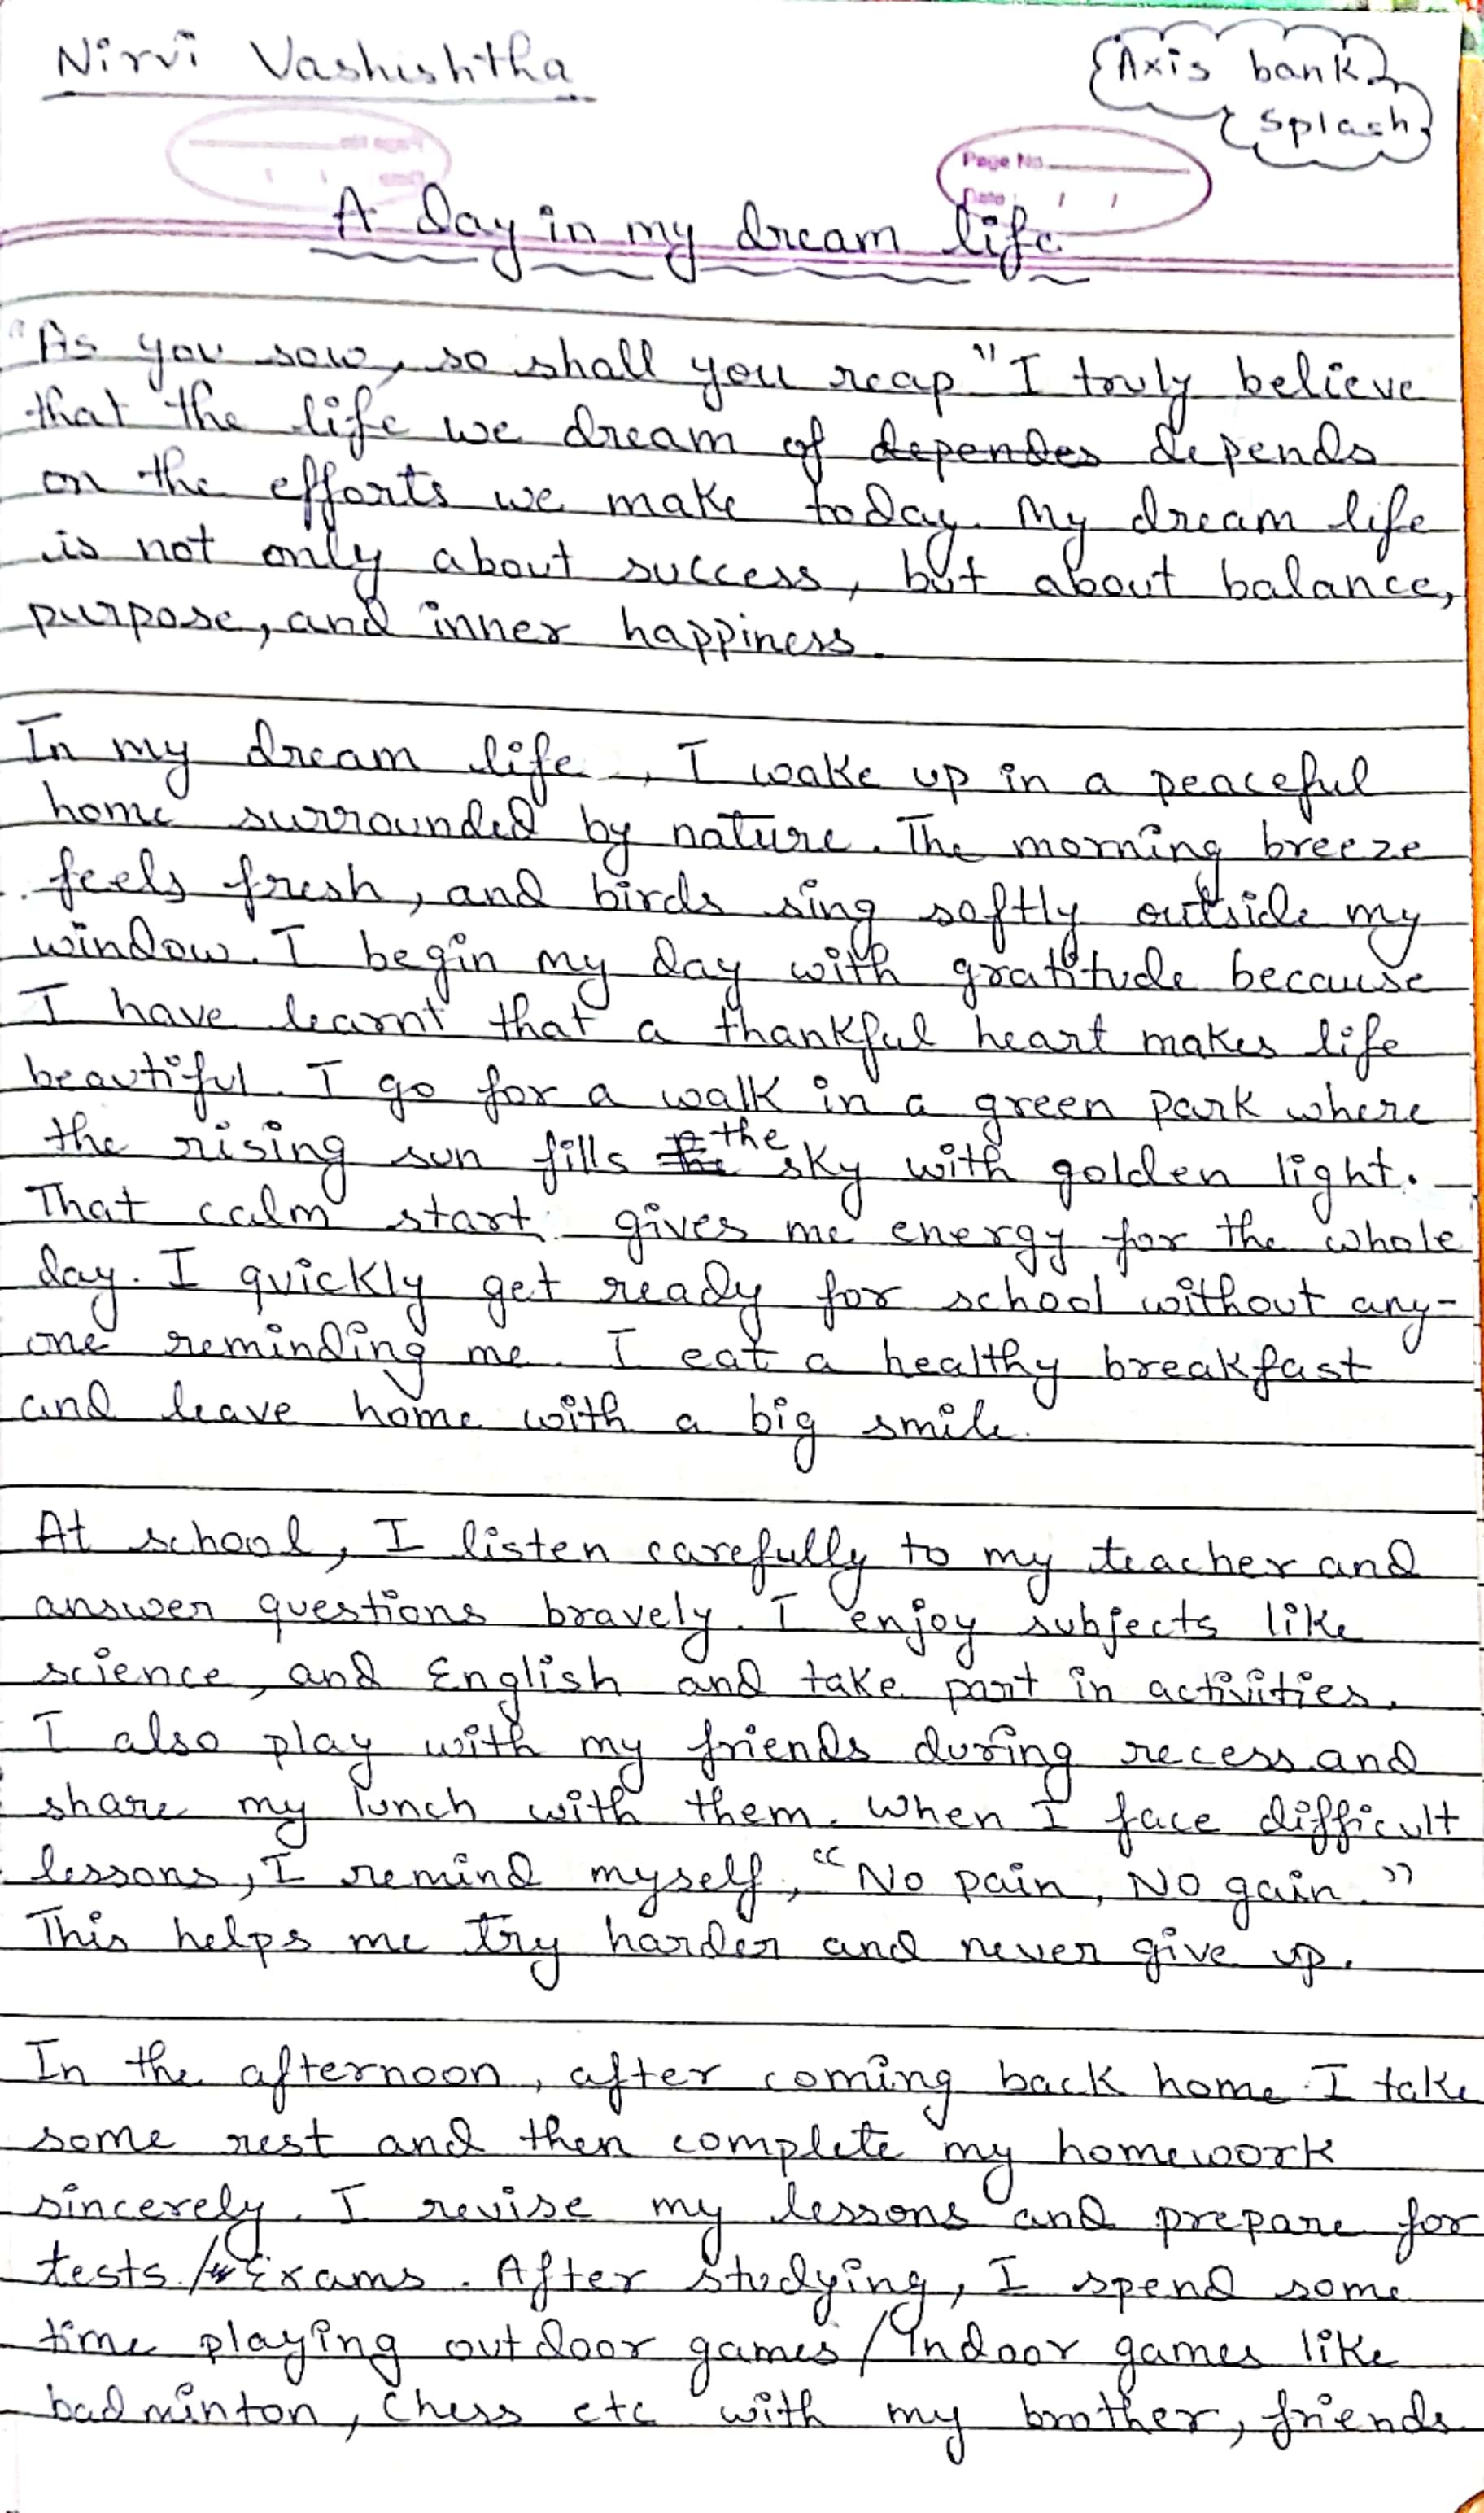 Nirvi Vashishtha
Axis bank
Splash
Page No.
Date / /
A Day in my dream life
"As you sow, so shall you reap" I truly believe
that the life we dream of dependes depends
on the efforts we make today. My dream life
is not only about success, but about balance,
purpose, and inner happiness.
In my dream life, I wake up in a peaceful
home surrounded by nature. The morning breeze
feels fresh, and birds sing softly outside my
window. I begin my day with gratitude because
I have learnt that a thankful heart makes life
beautiful. I go for a walk in a green park where
the rising sun fills the sky with golden light.
That calm start gives me energy for the whole
day. I quickly get ready for school without any-
one reminding me. I eat a healthy breakfast
and leave home with a big smile.
At school, I listen carefully to my teacher and
answer questions bravely. I enjoy subjects like
science, and English and take part in activities.
I also play with my friends during recess and
share my lunch with them. When I face difficult
lessons, I remind myself, "No pain, No gain."
This helps me try harder and never give up.
In the afternoon, after coming back home I take
some rest and then complete my homework
sincerely. I revise my lessons and prepare for
tests / Exams. After studying, I spend some
time playing outdoor games / Indoor games like
badminton, Chess etc with my brother, friends